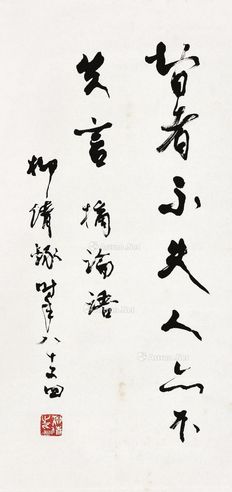 智者不失人亦不
失言 摘论语
柳倩录时年八十又四